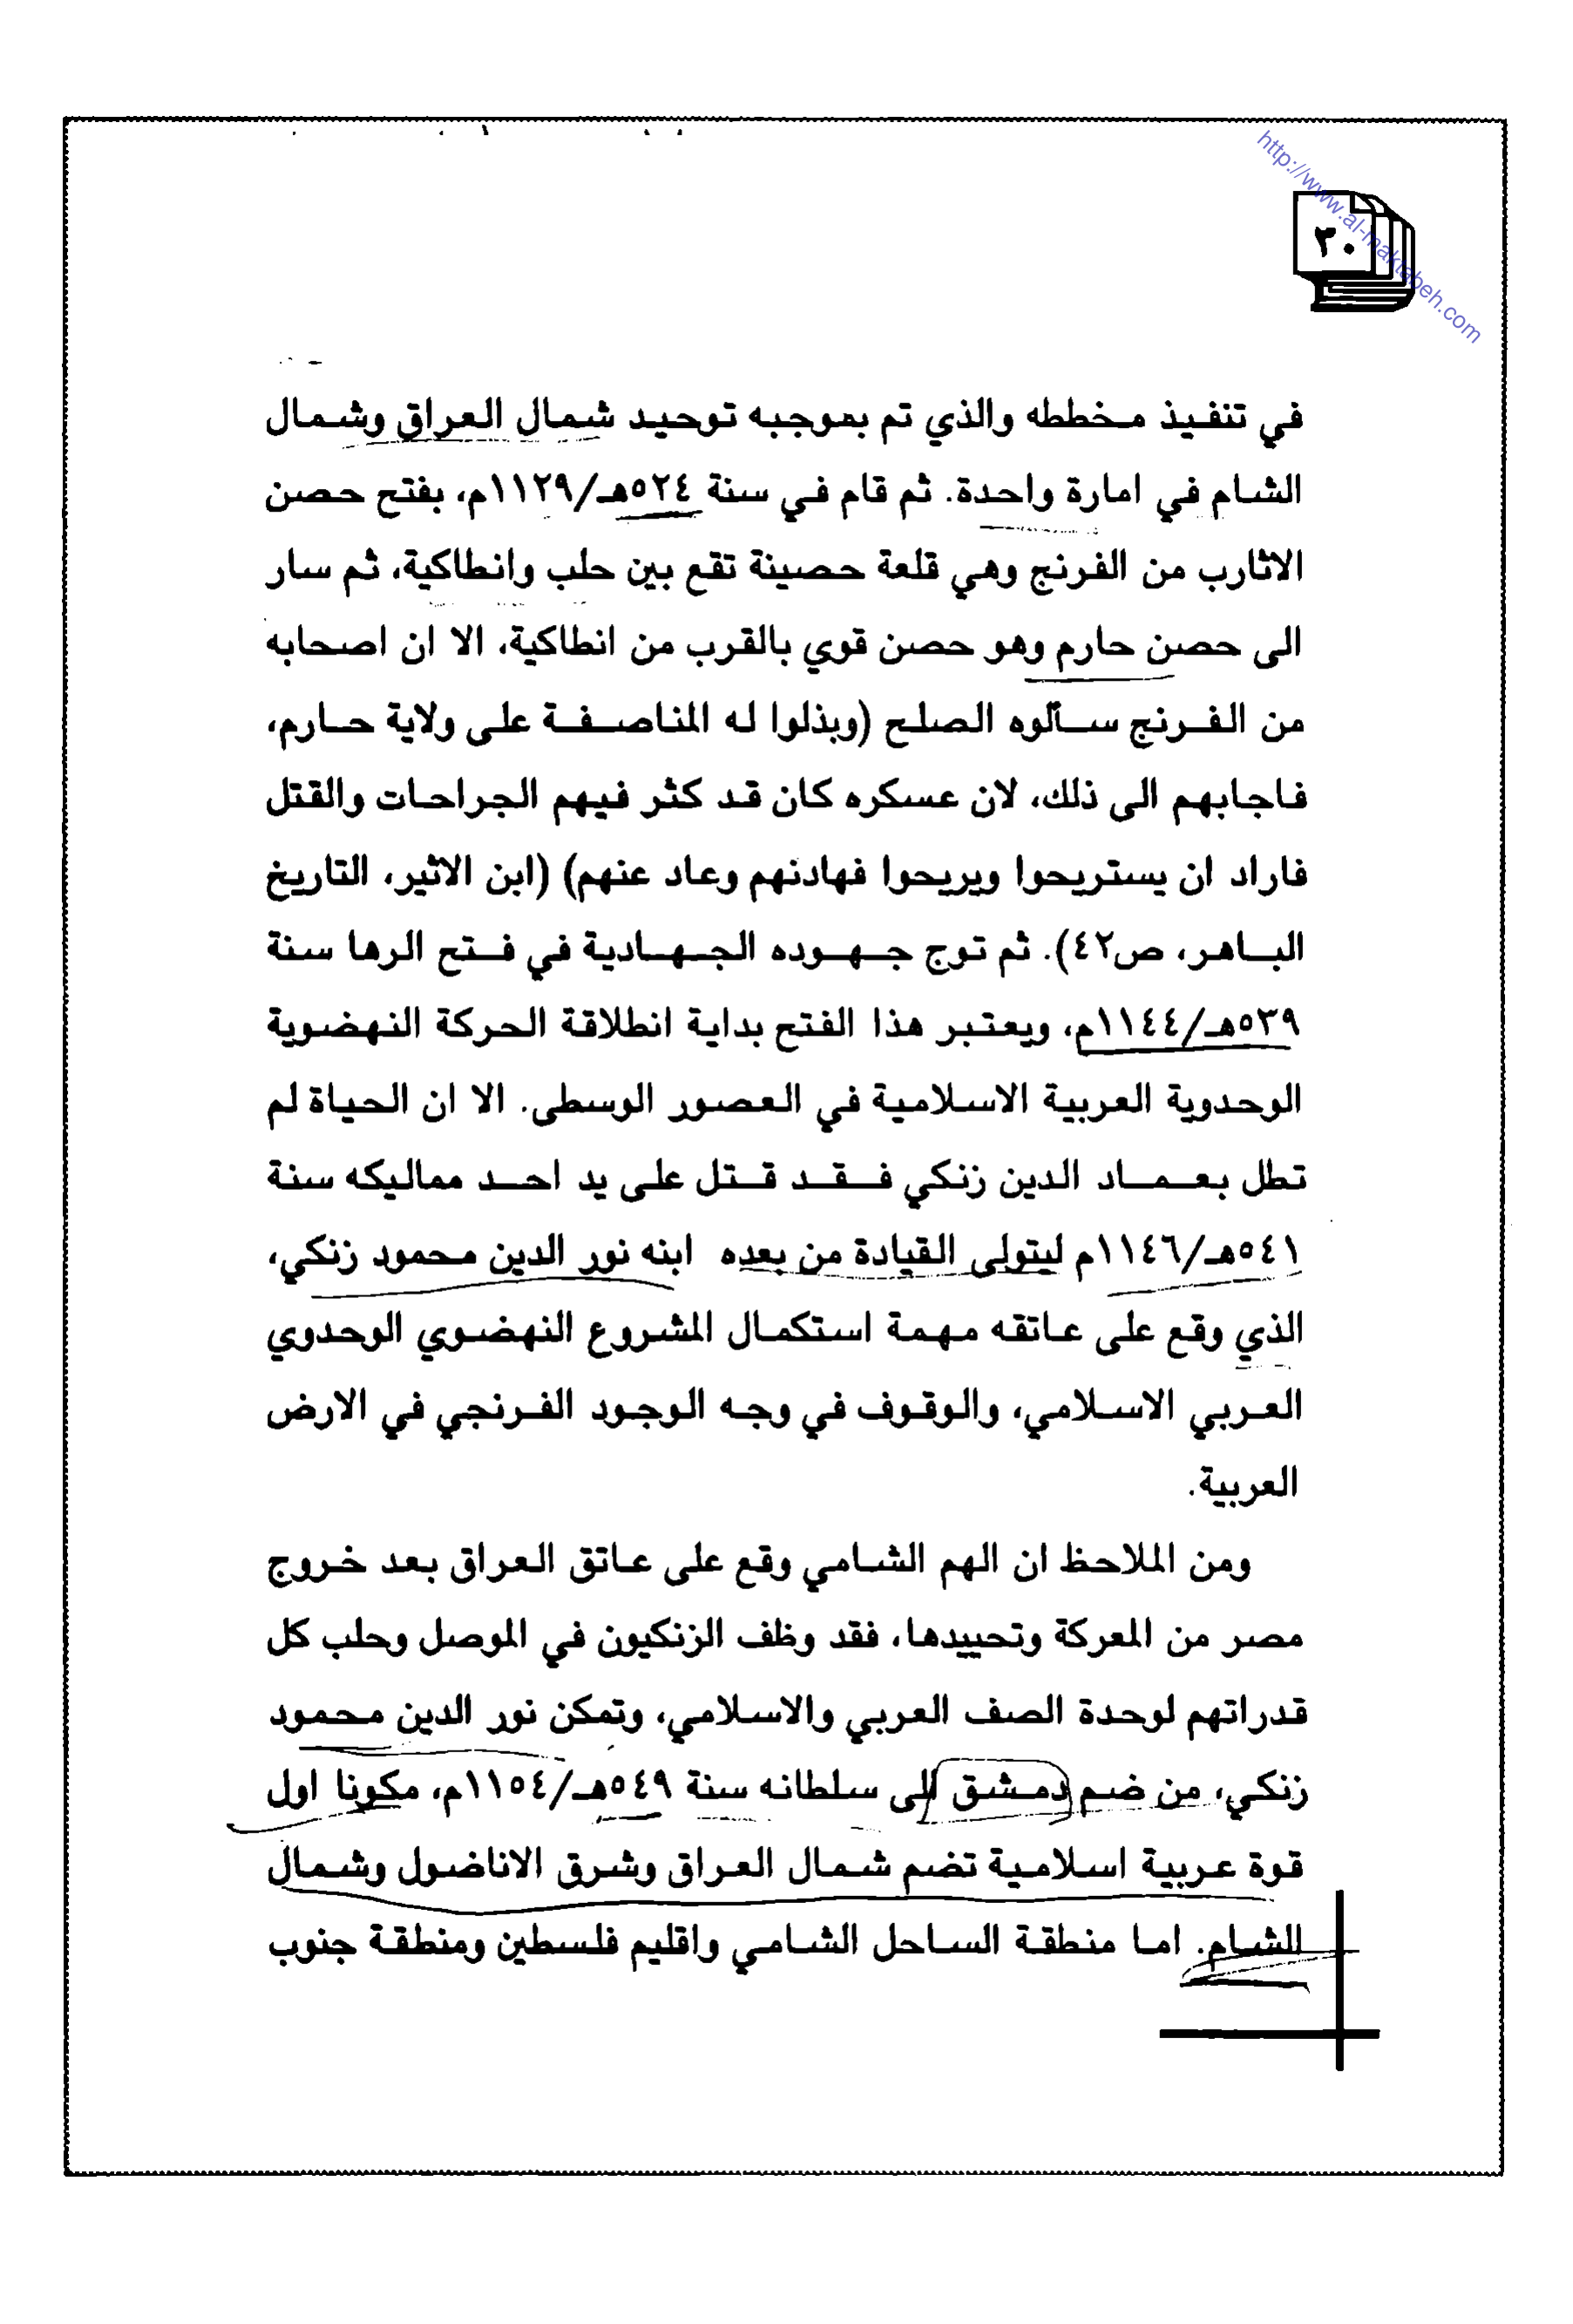 http://www.al-maktabeh.com
٢٠
في تنفيذ مخططه والذي تم بموجبه توحيد شمال العراق وشمال
الشام في امارة واحدة. ثم قام في سنة ٥٢٤هـ/١١٢٩م، بفتح حصن
الاثارب من الفرنج وهي قلعة حصينة تقع بين حلب وانطاكية، ثم سار
الى حصن حارم وهو حصن قوي بالقرب من انطاكية، الا ان اصحابه
من الفرنج سألوه الصلح (وبذلوا له المناصفة على ولاية حارم،
فاجابهم الى ذلك، لان عسكره كان قد كثر فيهم الجراحات والقتل
فاراد ان يستريحوا ويريحوا فهادنهم وعاد عنهم) (ابن الاثير، التاريخ
الباهر، ص٤٢). ثم توج جهوده الجهادية في فتح الرها سنة
٥٣٩هـ/١١٤٤م، ويعتبر هذا الفتح بداية انطلاقة الحركة النهضوية
الوحدوية العربية الاسلامية في العصور الوسطى. الا ان الحياة لم
تطل بعماد الدين زنكي فقد قتل على يد احد مماليكه سنة
٥٤١هـ/١١٤٦م ليتولى القيادة من بعده ابنه نور الدين محمود زنكي،
الذي وقع على عاتقه مهمة استكمال المشروع النهضوي الوحدوي
العربي الاسلامي، والوقوف في وجه الوجود الفرنجي في الارض
العربية.
ومن الملاحظ ان الهم الشامي وقع على عاتق العراق بعد خروج
مصر من المعركة وتحييدها، فقد وظف الزنكيون في الموصل وحلب كل
قدراتهم لوحدة الصف العربي والاسلامي، وتمكن نور الدين محمود
زنكي، من ضم دمشق الى سلطانه سنة ٥٤٩هـ/١١٥٤م، مكونا اول
قوة عربية اسلامية تضم شمال العراق وشرق الاناضول وشمال
الشام. اما منطقة الساحل الشامي واقليم فلسطين ومنطقة جنوب